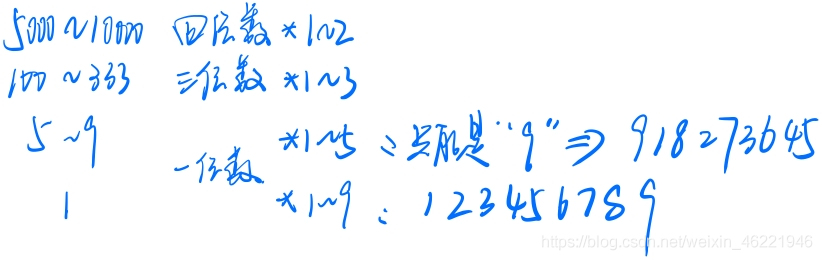 5000~10000 四位数 *1~2
100~333 三位数 *1~3
5~9 *1~5 ∴只能是"9"⇒918273645
一位数
1 *1~9 : 123456789
https://blog.csdn.net/weixin_46221946